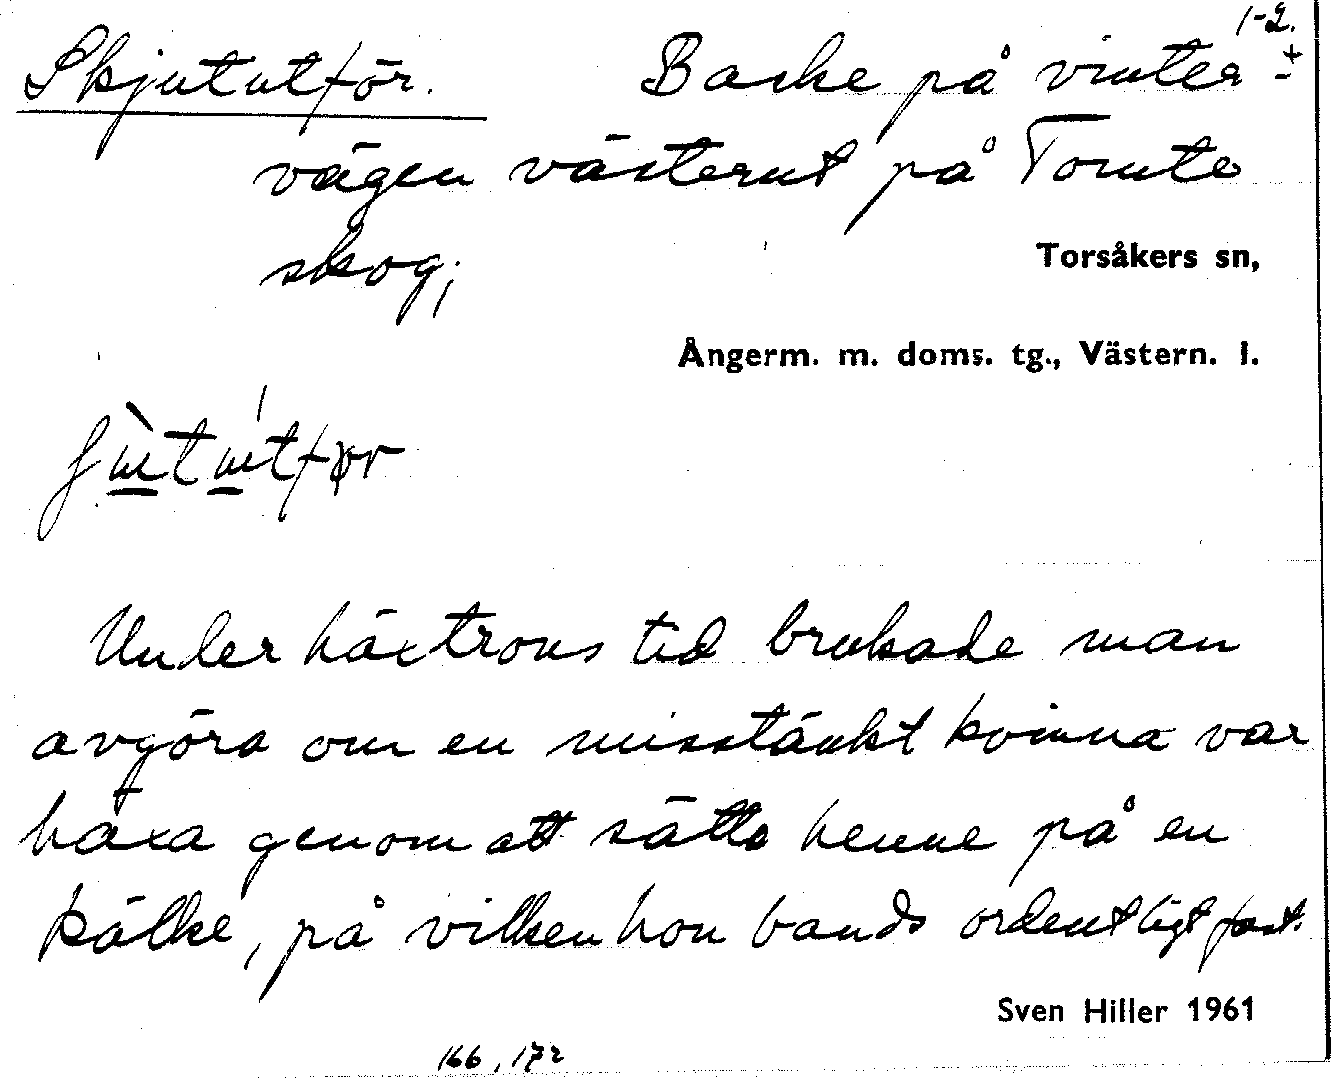 1-2.
Skjututför. Backe på vinter
vägen västerut på Tomte
skog;
Torsåkers sn,
Ångerm. m. doms. tg., Västern. l.
Under häxtrons tid brukade man
avgöra om en misstänkt kvinna var
häxa genom att sätta henne på en
kälke, på vilken hon bands ordentligt fast.
Sven Hiller 1961
166, 172